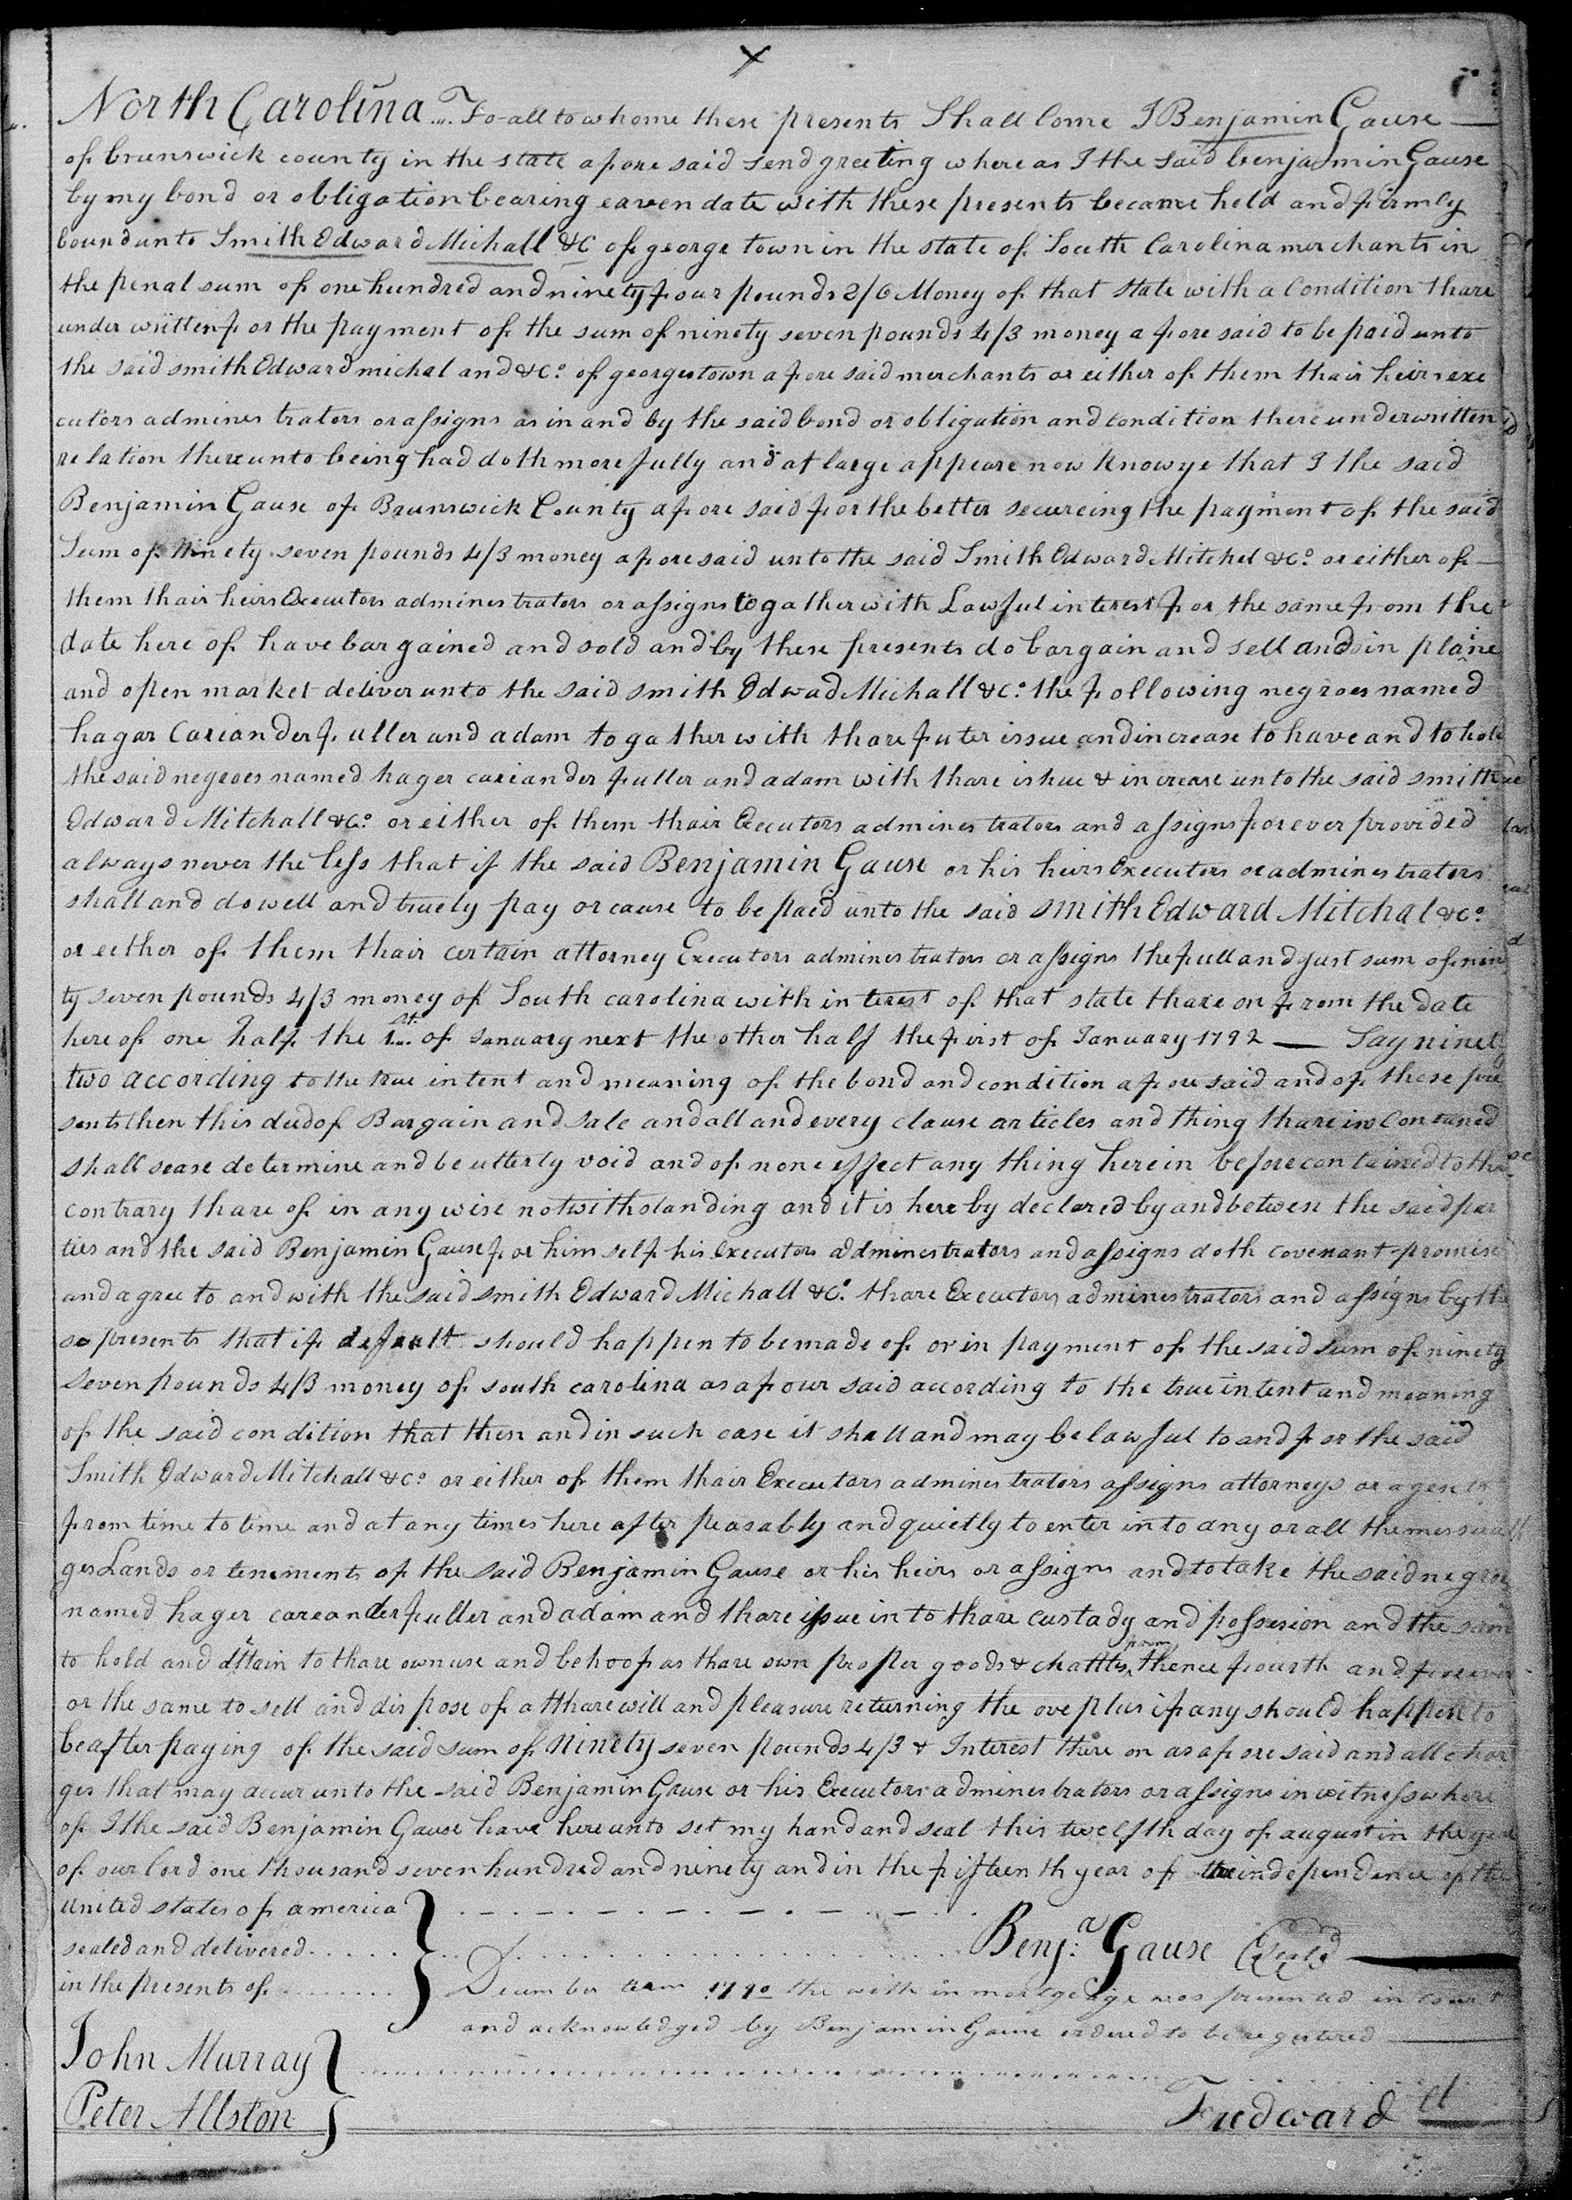 North Carolina ... To all to whome these presents Shall Come I Benjamin Gause
of brunswick county in the state afore said send greeting where as I the said benjamin Gause
by my bond or obligation bearing eaven date with these presents became held and firmly
bound unto Smith Edward Michall &C of george town in the state of South Carolina merchants in
the penal sum of one hundred and ninety four pounds 2/6 Money of that state with a Condition thare
under written for the payment of the sum of ninety seven pounds 4/3 money afore said to be paid unto
the said smith Edward michal and &Co. of georgetown afore said merchants or either of them thair heirs exe
cutors adminestrators or assigns as in and by the said bond or obligation and condition there underwritten
relation thereunto being had doth more fully and at large appeare now know ye that I the said
Benjamin Gause of Brunswick County afore said for the better secureing the payment of the said
Sum of Ninety seven pounds 4/3 money aforesaid unto the said Smith Edward Mitchel &Co. or either of
them thair heirs Executors adminestrators or assigns togather with Lawful interest for the same from the
date here of have bargained and sold and by these presents do bargain and sell and in plaine
and open market deliver unto the said smith Edwad Michall &Co. the following negroes named
hagar Cariander fuller and adam togather with thare futer issue and increase to have and to hold
the said negroes named hager cariander fuller and adam with thare ishue & increase unto the said smith
Edward Mitchall &Co. or either of them thair Executors adminestrators and assigns forever provided
always never the less that if the said Benjamin Gause or his heirs Executors or adminestrators
shall and do well and truely pay or cause to be paed unto the said smith Edward Mitchal &Co.
or either of them thair certain attorney Executors adminestrators or assigns the full and just sum of nin
ty seven pounds 4/3 money of South carolina with interest of that state thare on from the date
here of one half the 1st. of January next the other half the first of January 1792 — Say ninety
two according to the true intent and meaning of the bond and condition afore said and of these pre
sents then this deed of Bargain and Sale and all and every clause articles and thing thare in Contaned
shall sease determine and be utterly void and of none effect any thing herein before contained to the
contrary thare of in any wise notwithstanding and it is here by declared by and between the said par
ties and the said Benjamin Gause for him self his executors adminestrators and assigns doth covenant promise
and agree to and with the said smith Edward Michall &Co. thare Executors adminestrators and assigns by the
se presents that if default should happen to be made of or in payment of the said sum of ninety
Seven pounds 4/3 money of south carolina as afour said according to the true intent and meaning
of the said condition that then and in such case it shall and may be lawful to and for the said
Smith Edward Mitchall &Co. or either of them thair Executors adminestrators assigns attorneys or agents
from time to time and at any times here after peasably and quietly to enter into any or all the messua
ges Lands or tenements of the said Benjamin Gause or his heirs or assigns and to take the said negroe
named hager careander fuller and adam and thare issue in to thare custady and possesion and the same
to hold and ditain to thare own use and behoof as thare own proper goods & chattles from thence fourth and forever
or the same to sell and dispose of at thare will and pleasure returning the overplus if any should happen to
be after paying of the said sum of Ninety seven pounds 4/3 & Interest there on as afore said and all char
ges that may accur unto the said Benjamin Gause or his Executors adminestrators or assigns in witness where
of I the said Benjamin Gause have here unto set my hand and seal this twelfth day of august in the year
of our lord one thousand seven hundred and ninety and in the fifteenth year of the independence of the
united states of america
sealed and delivered
in the presents of
Benja. Gause (Seal)
December term 1790 the with in mortgeage was presented in court
and acknowledged by Benjamin Gause ordered to be registered
John Murray
Peter Allston